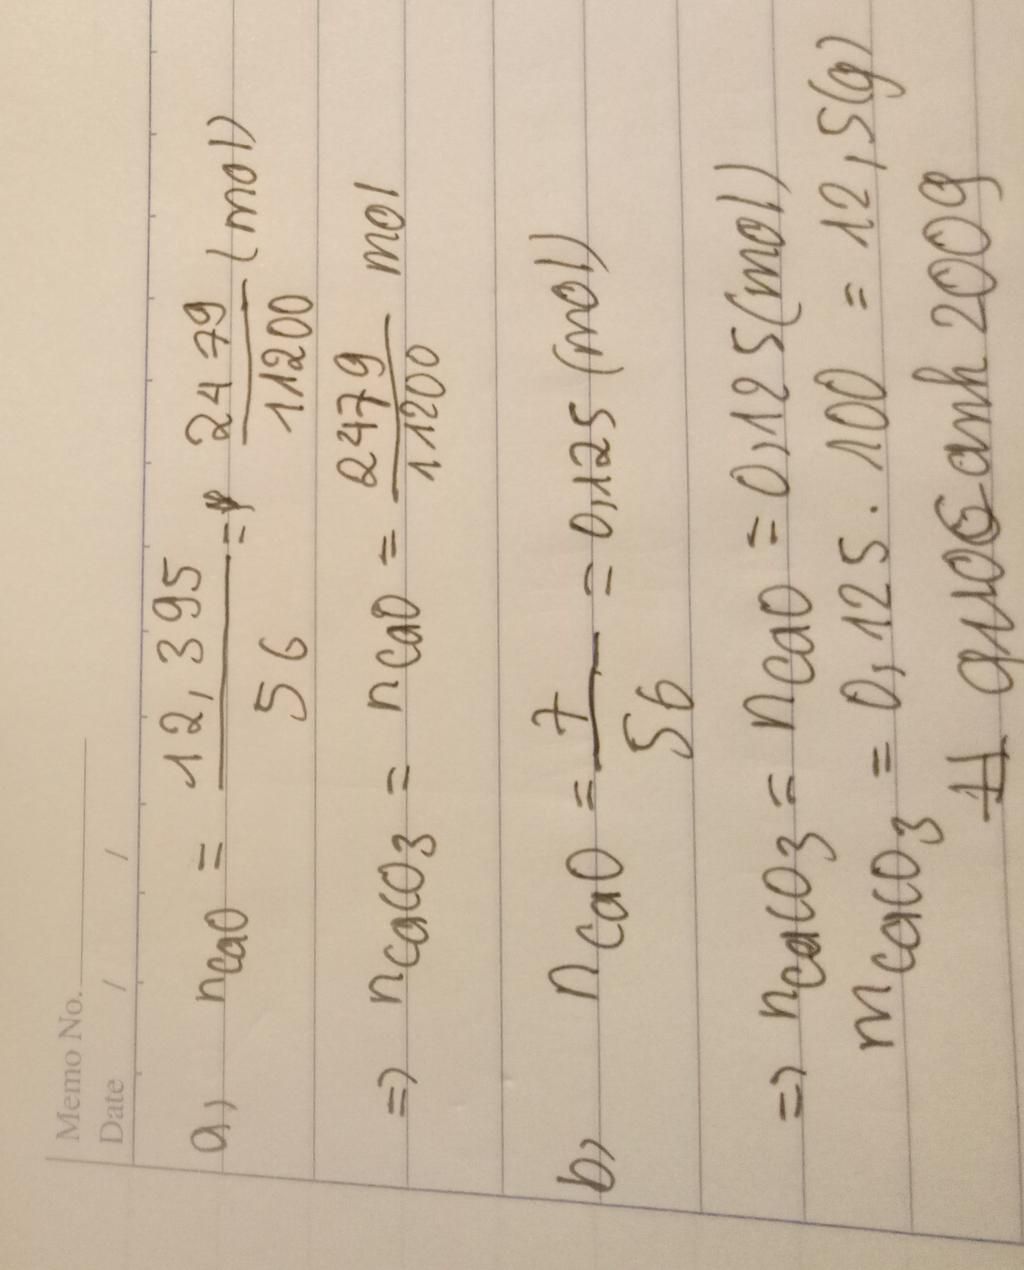 Memo No.
Date / /
a, nCaO = 12,395/56 = 2479/11200 (mol)
=> nCaCO3 = nCaO = 2479/11200 mol
b, nCaO = 7/56 = 0,125 (mol)
=> nCaCO3 = nCaO = 0,125 (mol)
mCaCO3 = 0,125 . 100 = 12,5(g)
# quocanh2009